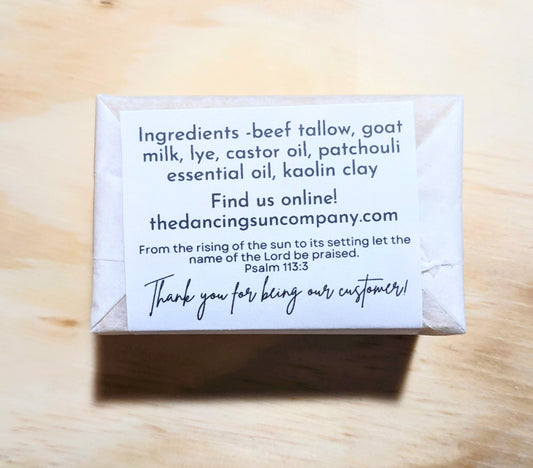 Ingredients -beef tallow, goat
milk, lye, castor oil, patchouli
essential oil, kaolin clay
Find us online!
thedancingsuncompany.com
From the rising of the sun to its setting let the
name of the Lord be praised.
Psalm 113:3
Thank you for being our customer!